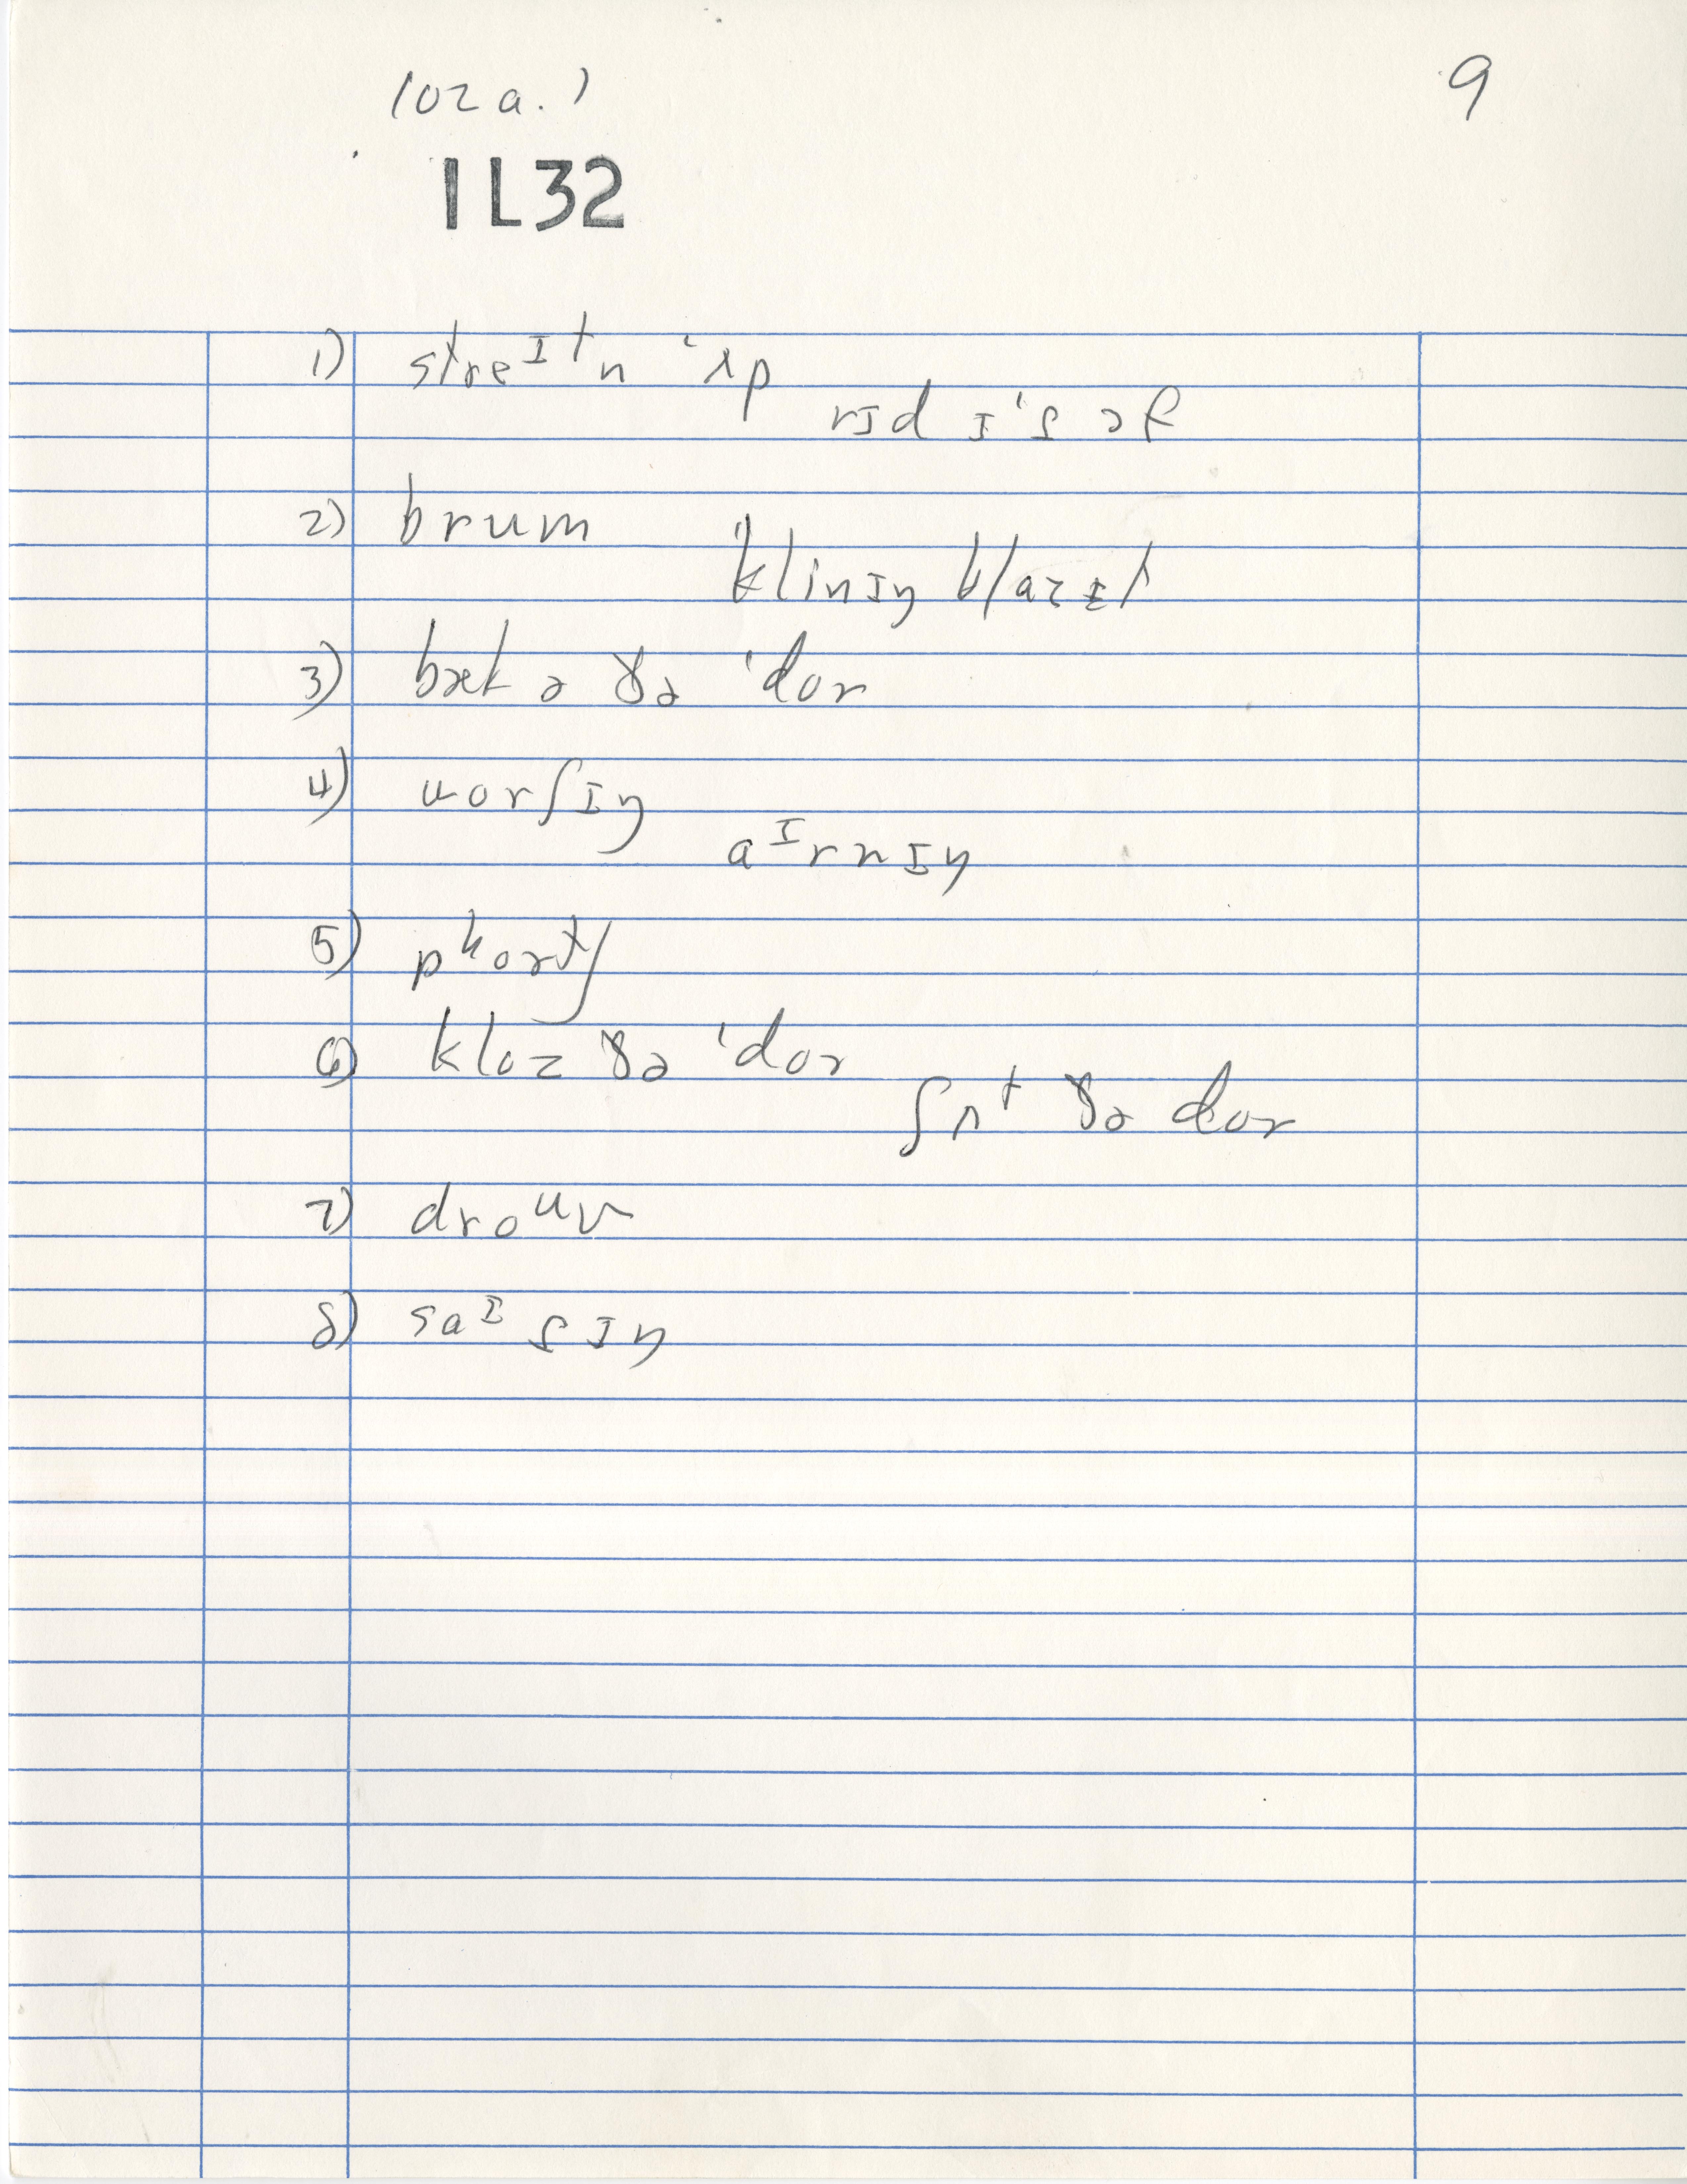 102a.)
9
1L32
1) streᴵᵗn ˈʌp
rɪd ɪˈɾ əf
2) brum
ˈklinɪŋ klazɪt
3) bæk ə ðə ˈdor
4) worʃɪŋ
aᴵrnɪŋ
5) pʰortʃ
6) kloz ðə ˈdor
ʃʌt ðə dor
7) droᵘv
8) saᴵɾɪŋ